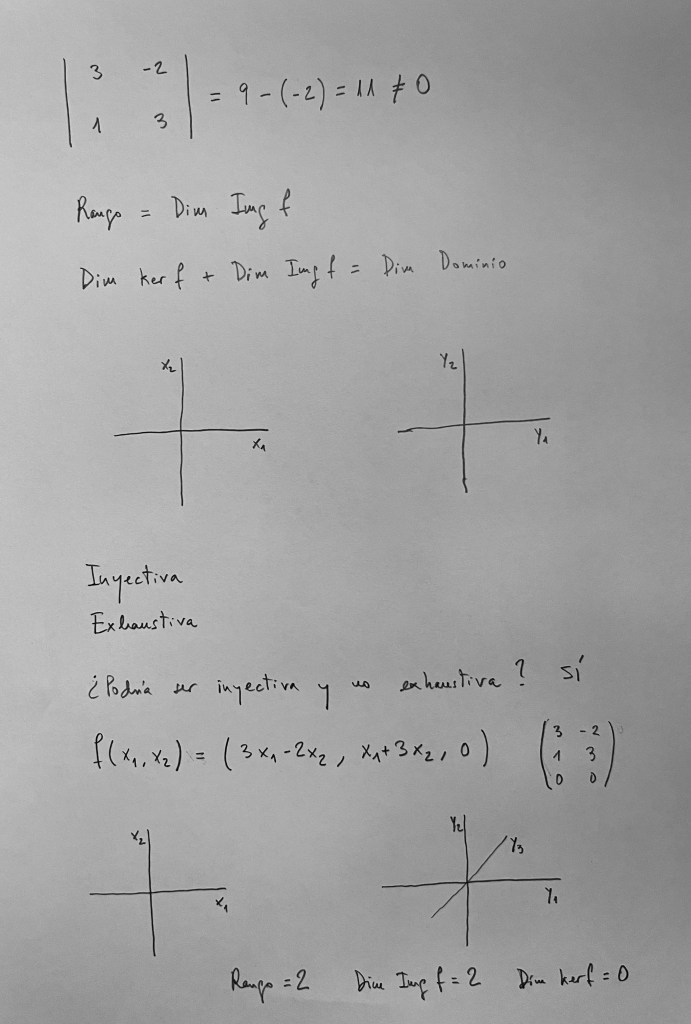 | 3 -2 |
| 1 3 | = 9 - (-2) = 11 ≠ 0
Rango = Dim Img f
Dim Ker f + Dim Img f = Dim Dominio
x₂
x₁
Y₂
Y₁
Inyectiva
Exhaustiva
¿Podría ser inyectiva y no exhaustiva? SÍ
f(x₁, x₂) = (3x₁ - 2x₂, x₁ + 3x₂, 0)
( 3 -2 )
( 1 3 )
( 0 0 )
x₂
x₁
Y₂
Y₃
Y₁
Rango = 2 Dim Img f = 2 Dim ker f = 0